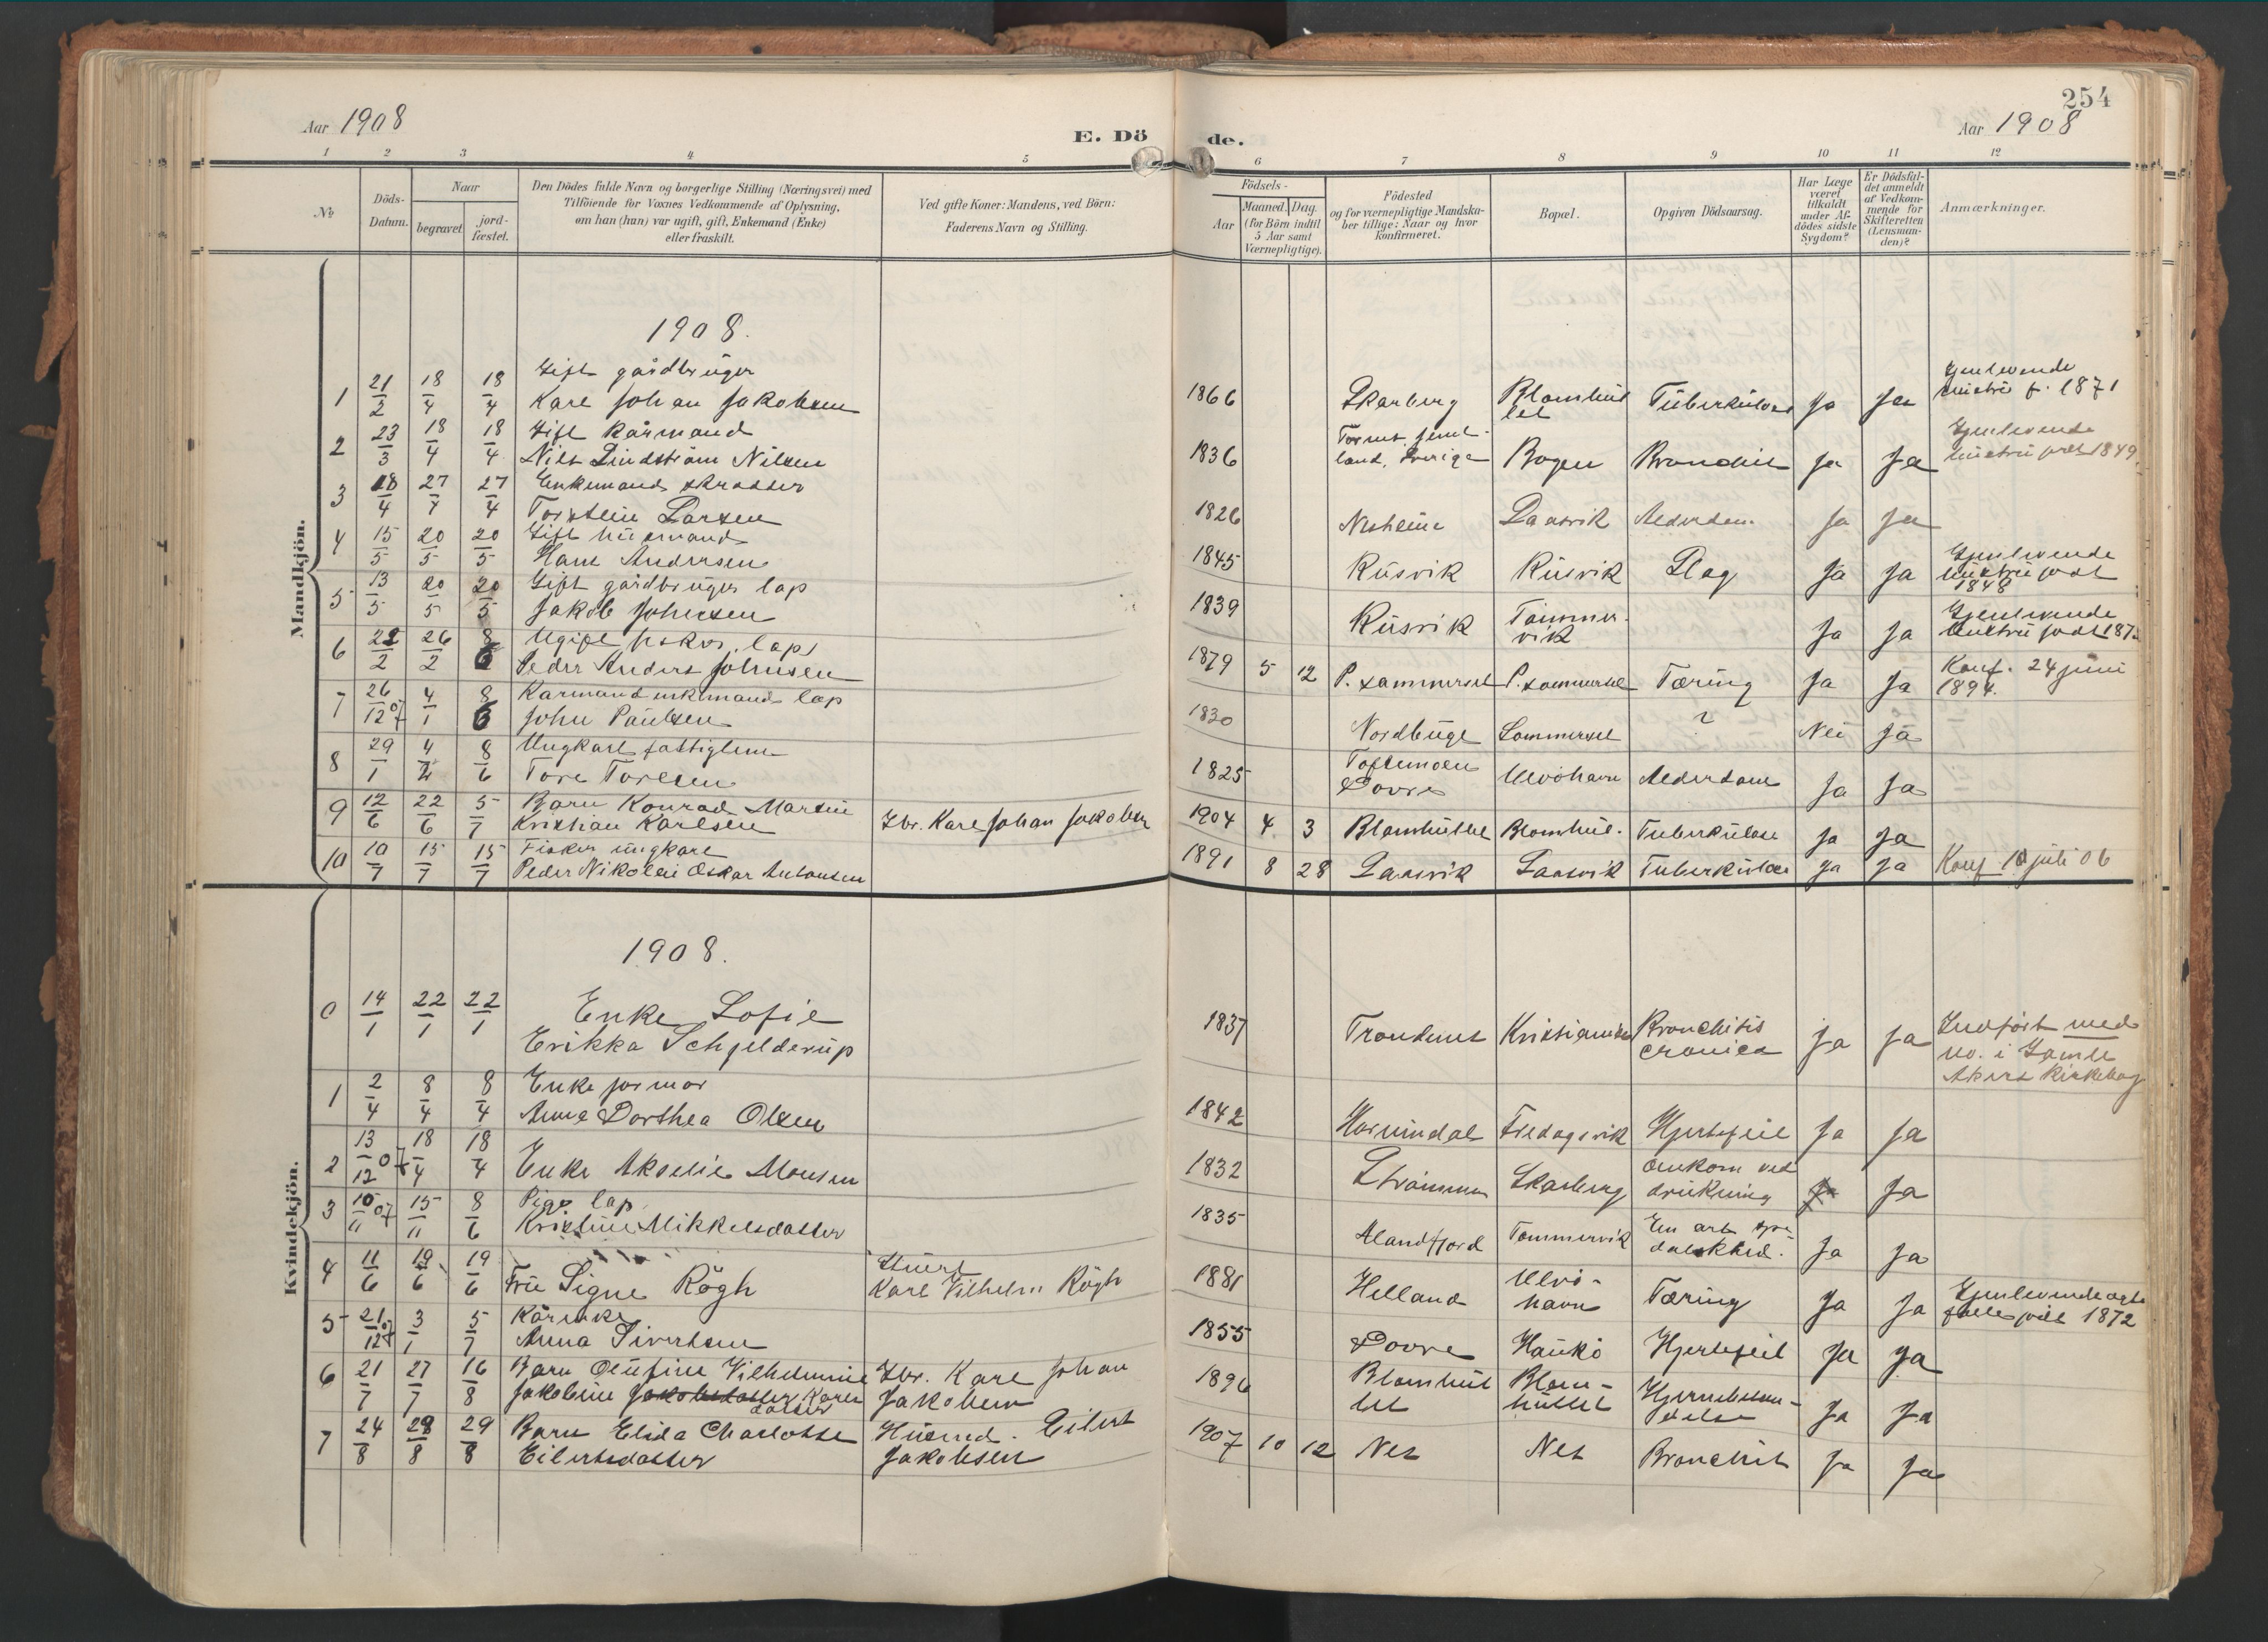 254
Aar 1908
E. Dö de.
Aar 1908
1 2 3 4 5 6 7 8 9 10 11 12
No
Döds-Datum.
Naar
begravet
jord-fæstet.
Den Dödes fulde Navn og borgerlige Stilling (Næringsvei) med
Tilföiende for Voxnes Vedkommende af Oplysning,
om han (hun) var ugift, gift, Enkemand (Enke)
eller fraskilt.
Ved gifte Koner: Mandens, ved Börn:
Faderens Navn og Stilling.
Födsels-
Aar
Maaned. Dag.
(for Börn indtil
5 Aar samt
Værnepligtige).
Födested
og for værnepligtige Mandska-
ber tillige: Naar og hvor
konfirmeret.
Bopæl.
Opgiven Dödsaarsag.
Har Læge
været
tilkaldt
under Af-
dödes sidste
Sygdom?
Er Dödsfal-
det anmeldt
af Vedkom-
mende for
Skifteretten
(Lensman-
den)?
Anmærkninger.
Mandkjön.
1908.
1 21/2 18/4 18/4 Gift gårdbruger
Karl Johan Jakobsen 1866 Skarberg Blomhul
let Tuberkulose Ja Ja Gjenlevende
hustru f. 1871
2 23/3 18/4 18/4 Gift kårmand
Nils Lindström Nilsen 1836 land, Sverige Bogen Bronchit Ja Ja Gjenlevende
hustru født 1849
3 18/4 27/4 27/4 Enkemand skrædder
Torstein Larsen 1826 Nesheim Laasvik Alderdom Ja Ja
4 15/5 20/5 20/5 Gift husmand
Hans Andersen 1845 Rusvik Rusvik Slag Ja Ja Gjenlevende
hustru født
1848
5 13/5 20/5 20/5 Gift gårdbruger lap
Jakob Johnsen 1839 Rusvik Tömmer-
vik Ja Ja Gjenlevende
hustru født
6 22/2 26/2 8/6 Ugift fisker, lap
Peder Anders Johnsen 1879 5 12 P. sommersel P. sommersel Tæring Ja Ja Konf. 24 juni
1894.
7 26/12 07 4/1 8/6 Kårmand enkemand lap
John Paulsen 1830 Nordbuge Sommersel ? Nei Ja
8 29/1 4/2 8/6 Ungkarl fattiglem
Tore Toresen 1825 Toftemoen
Dovre Ulvöhavn Alderdom Ja Ja
9 12/6 22/6 5/7 Barn Konrad Martin
Kristian Karlsen Gbr. Karl Johan Jakobsen 1904 4 3 Blomhullet Blomhul. Tuberkulose Ja Ja
10 10/7 15/7 15/7 Fisker ungkarl
Peder Nikolai Oskar Antonsen 1891 8 28 Laasvik Laasvik Tuberkulose Ja Ja Konf. 10 juli 06
Kvindekjön.
1908.
0 14/1 22/1 22/1 Enke Sofie
Erikka Schjelderup 1837 Trondenes Kristiania Bronchitis
cronica Ja Ja Indført med
no. i Gamle
Akers kirkebog
1 2/4 8/4 8/4 Enke jormor
Anna Dorthea Olsen 1842 Hornindal Fredagsvik Hjertefeil Ja Ja
2 13/12 07 18/4 18/4 Enke Akselie Monsen 1832 Strömmen Skarberg Omkom ved
drukning Ja
3 10/11 07 15/11 8/6 Pige lap
Kristine Mikkelsdatter 1835 Alandfjord Tömmervik En art spe-
dalskhed. Ja Ja
4 11/6 19/6 19/6 Fru Signe Rögh
Karl Vilhelm Rögh 1881 Helland Ulvö-
havn Tæring Ja Ja Gjenlevende ægte
fælle født 1872
5 21/12 07 3/1 5/7 Kårenke
Anna Sivertsen 1855 Dovre Haukö Hjertefeil Ja Ja
6 21/7 27/7 16/8 Barn Olufine Vilhelmine
Jakobine Jakobsdatter Karls
datter Gbr. Karl Johan
Jakobsen 1896 Blomhul
let Blom-
hullet Hjernebetæn-
delse Ja Ja
7 24/8 29/8 29/8 Barn Elida Charlotte
Eilertsdatter Husmd. Eilert
Jakobsen 1907 10 12 Nes Nes Bronchit Ja Ja